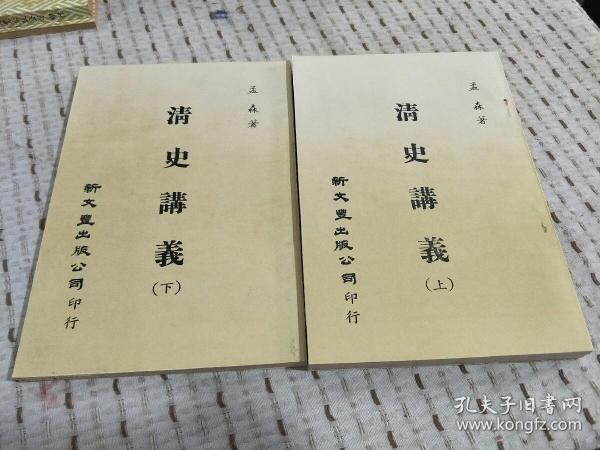 孟森著
清史講義
(下)
新文豐出版公司印行
孟森著
清史講義
(上)
新文豐出版公司印行
孔夫子旧书网
kongfz.com